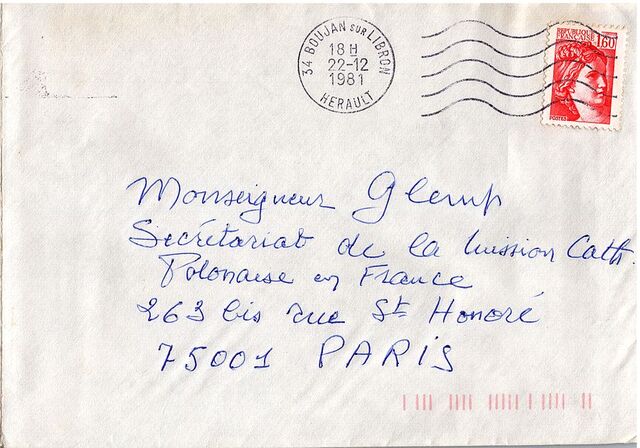 34 BOUJAN sur LIBRON
18 H
22-12
1981
HERAULT
REPUBLIQUE
FRANCAISE
1,60
POSTES
Monseigneur Glemp
Secrétariat de la Mission Cath.
Polonaise en France
263 bis rue St Honoré
75001 PARIS